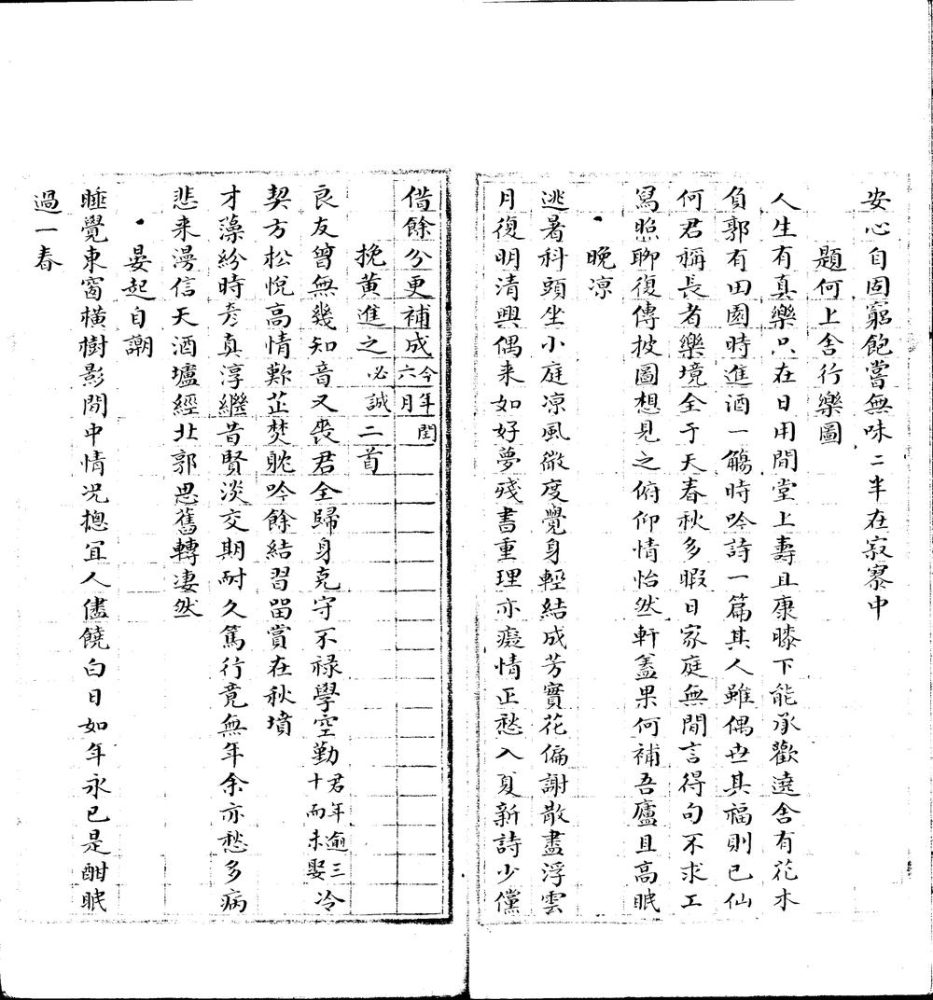 安心自固窮飽嘗無味二半在寂寥中
題何上舍行樂圖
人生有真樂只在日用間堂上壽且康膝下能承歡遶舍有花木
負郭有田園時進酒一觴時吟詩一篇其人雖偶世其福則已仙
何君稱長者樂境全于天春秋多暇日家庭無間言得句不求工
寫照聊復傳披圖想見之俯仰情怡然軒蓋果何補吾廬且高眠
晚凉
逃暑科頭坐小庭凉風微度覺身輕結成芳實花偏謝散盡浮雲
月復明清興偶来如好夢殘書重理亦癡情正愁入夏新詩少儻
借餘分更補成今年閏六月
挽黄進之必誠二首
良友曾無幾知音又喪君全歸身克守不禄學空勤君年逾三十而未娶冷
契方松悅高情歎芷焚躭吟餘結習留賞在秋墳
才藻紛時彥真淳繼昔賢淡交期耐久篤行竟無年余亦愁多病
悲来漫信天酒壚經北郭思舊轉凄然
晏起自嘲
睡覺東窗橫樹影閒中情况摠宜人儘饒白日如年永已是酣眠
過一春